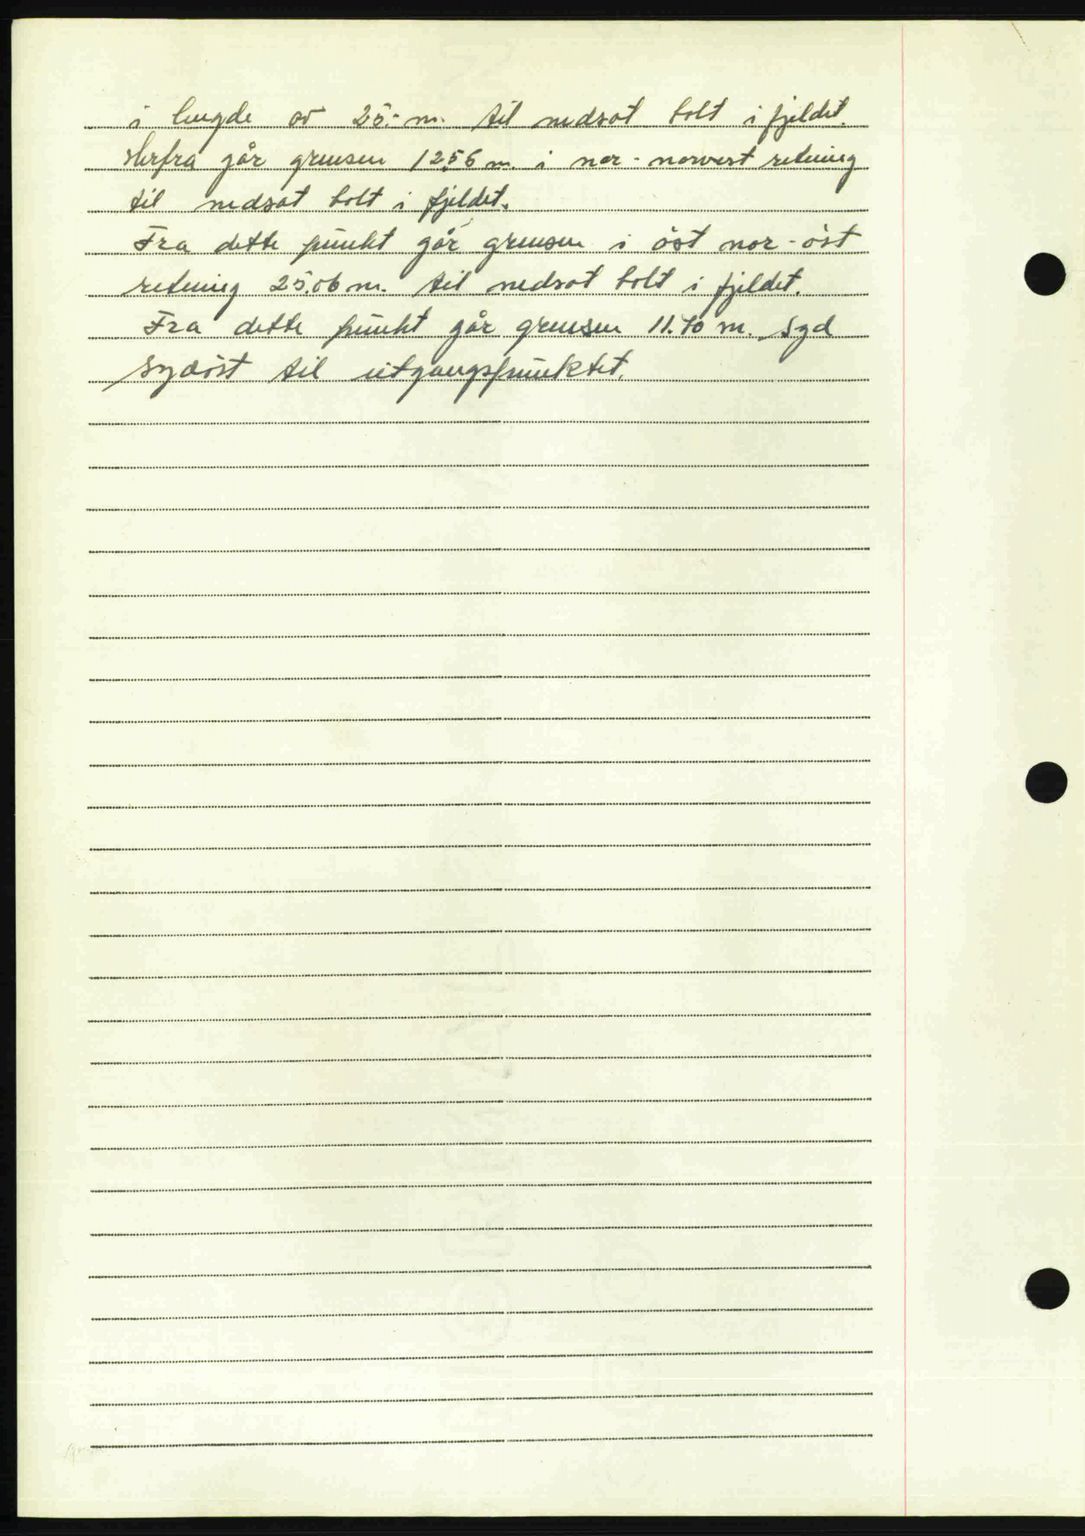 i lengde av 25.- m. til nedsat bolt i fjeldet.
Herfra går grensen 12,56 m. i nor-norvest retning
til nedsat bolt i fjeldet.
Fra dette punkt går grensen i öst nor-öst
retning 25.06 m. til nedsat bolt i fjeldet.
Fra dette punkt går grensen 11.70 m. syd
sydöst til utgangspunktet.